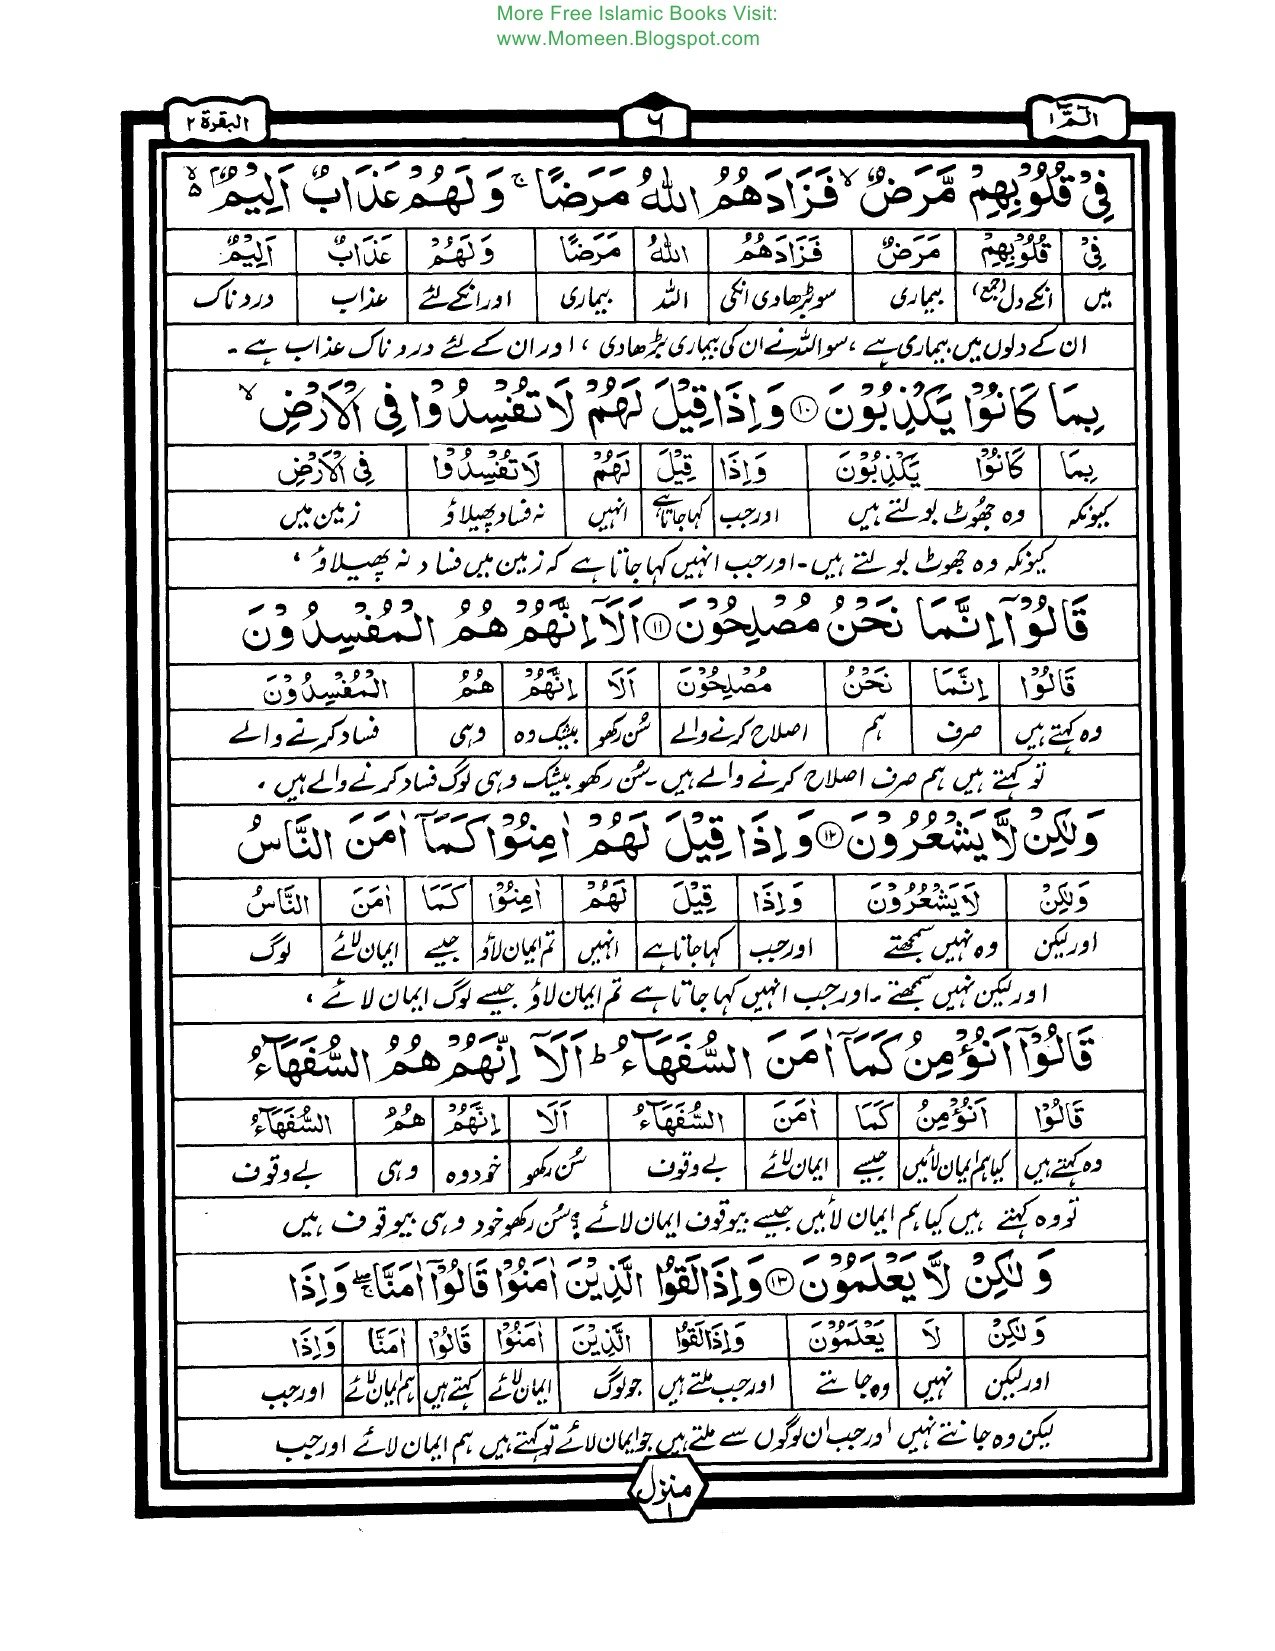 More Free Islamic Books Visit:
www.Momeen.Blogspot.com
الٓمّٓ ۱ ۶ البقرة ۲
فِیْ قُلُوْبِهِمْ مَّرَضٌ ۙ فَزَادَهُمُ اللّٰهُ مَرَضًا ۚ وَلَهُمْ عَذَابٌ اَلِیْمٌۢ ۙ۵
فِیْ قُلُوْبِهِمْ مَرَضٌ فَزَادَهُمُ اللّٰهُ مَرَضًا وَلَهُمْ عَذَابٌ اَلِیْمٌ
میں انکے دل (جمع) بیماری سو بڑھا دی انکی اللہ بیماری اور انکے لئے عذاب دردناک
ان کے دلوں میں بیماری ہے، سو اللہ نے ان کی بیماری بڑھا دی، اور ان کے لئے دردناک عذاب ہے۔
بِمَا كَانُوْا یَكْذِبُوْنَ ⑩ وَاِذَا قِیْلَ لَهُمْ لَا تُفْسِدُوْا فِی الْاَرْضِ ۙ
بِمَا كَانُوْا یَكْذِبُوْنَ وَاِذَا قِیْلَ لَهُمْ لَا تُفْسِدُوْا فِی الْاَرْضِ
کیونکہ وہ جھوٹ بولتے ہیں اور جب کہا جاتا ہے انہیں نہ فساد پھیلاؤ زمین میں
کیونکہ وہ جھوٹ بولتے ہیں۔ اور جب انہیں کہا جاتا ہے کہ زمین میں فساد نہ پھیلاؤ،
قَالُوْۤا اِنَّمَا نَحْنُ مُصْلِحُوْنَ ⑪ اَلَاۤ اِنَّهُمْ هُمُ الْمُفْسِدُوْنَ
قَالُوْا اِنَّمَا نَحْنُ مُصْلِحُوْنَ اَلَا اِنَّهُمْ هُمُ الْمُفْسِدُوْنَ
وہ کہتے ہیں صرف ہم اصلاح کرنے والے سُن رکھو بیشک وہ وہی فساد کرنے والے
تو کہتے ہیں ہم صرف اصلاح کرنے والے ہیں۔ سُن رکھو بیشک وہی لوگ فساد کرنے والے ہیں۔
وَلٰكِنْ لَّا یَشْعُرُوْنَ ⑫ وَاِذَا قِیْلَ لَهُمْ اٰمِنُوْا كَمَاۤ اٰمَنَ النَّاسُ
وَلٰكِنْ لَا یَشْعُرُوْنَ وَاِذَا قِیْلَ لَهُمْ اٰمِنُوْا كَمَا اٰمَنَ النَّاسُ
اور لیکن وہ نہیں سمجھتے اور جب کہا جاتا ہے انہیں تم ایمان لاؤ جیسے ایمان لائے لوگ
اور لیکن نہیں سمجھتے۔ اور جب انہیں کہا جاتا ہے تم ایمان لاؤ جیسے لوگ ایمان لائے،
قَالُوْۤا اَنُؤْمِنُ كَمَاۤ اٰمَنَ السُّفَهَآءُ ؕ اَلَاۤ اِنَّهُمْ هُمُ السُّفَهَآءُ
قَالُوْا اَنُؤْمِنُ كَمَا اٰمَنَ السُّفَهَآءُ اَلَا اِنَّهُمْ هُمُ السُّفَهَآءُ
وہ کہتے ہیں کیا ہم ایمان لائیں جیسے ایمان لائے بے وقوف سُن رکھو خود وہ وہی بے وقوف
تو وہ کہتے ہیں کیا ہم ایمان لائیں جیسے بیوقوف ایمان لائے؟ سُن رکھو خود وہی بیوقوف ہیں
وَلٰكِنْ لَّا یَعْلَمُوْنَ ⑬ وَاِذَا لَقُوا الَّذِیْنَ اٰمَنُوْا قَالُوْۤا اٰمَنَّا ۚۖ وَاِذَا
وَلٰكِنْ لَا یَعْلَمُوْنَ وَاِذَا لَقُوا الَّذِیْنَ اٰمَنُوْا قَالُوْا اٰمَنَّا وَاِذَا
اور لیکن نہیں وہ جانتے اور جب ملتے ہیں جو لوگ ایمان لائے کہتے ہیں ہم ایمان لائے اور جب
لیکن وہ جانتے نہیں اور جب ان لوگوں سے ملتے ہیں جو ایمان لائے تو کہتے ہیں ہم ایمان لائے اور جب
منزل ۱